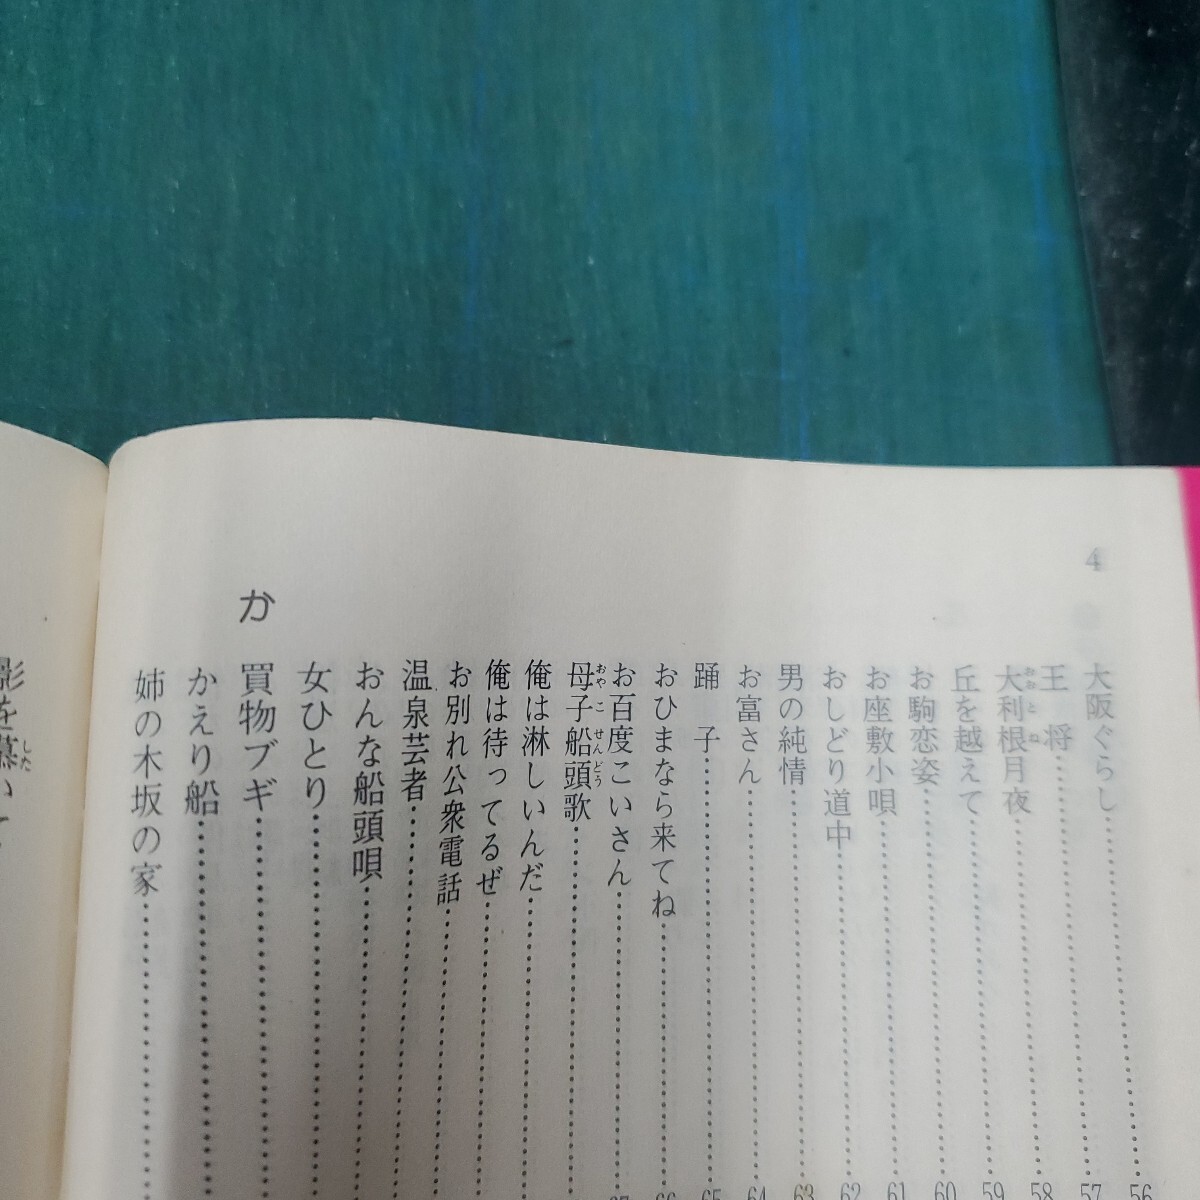 4
大阪ぐらし……………56
王将……………57
大利根月夜……………58
おおとね
丘を越えて……………59
お駒恋姿……………60
お座敷小唄……………61
おしどり道中……………62
男の純情……………63
お富さん……………64
踊子……………65
おひまなら来てね……………66
お百度こいさん……………67
母子船頭歌……………
おやこせんどう
俺は淋しいんだ……………
俺は待ってるぜ……………
お別れ公衆電話……………
温泉芸者……………
おんな船頭唄……………
女ひとり……………
か
買物ブギ……………
かえり船……………
姉の木坂の家……………
影を慕いて
した